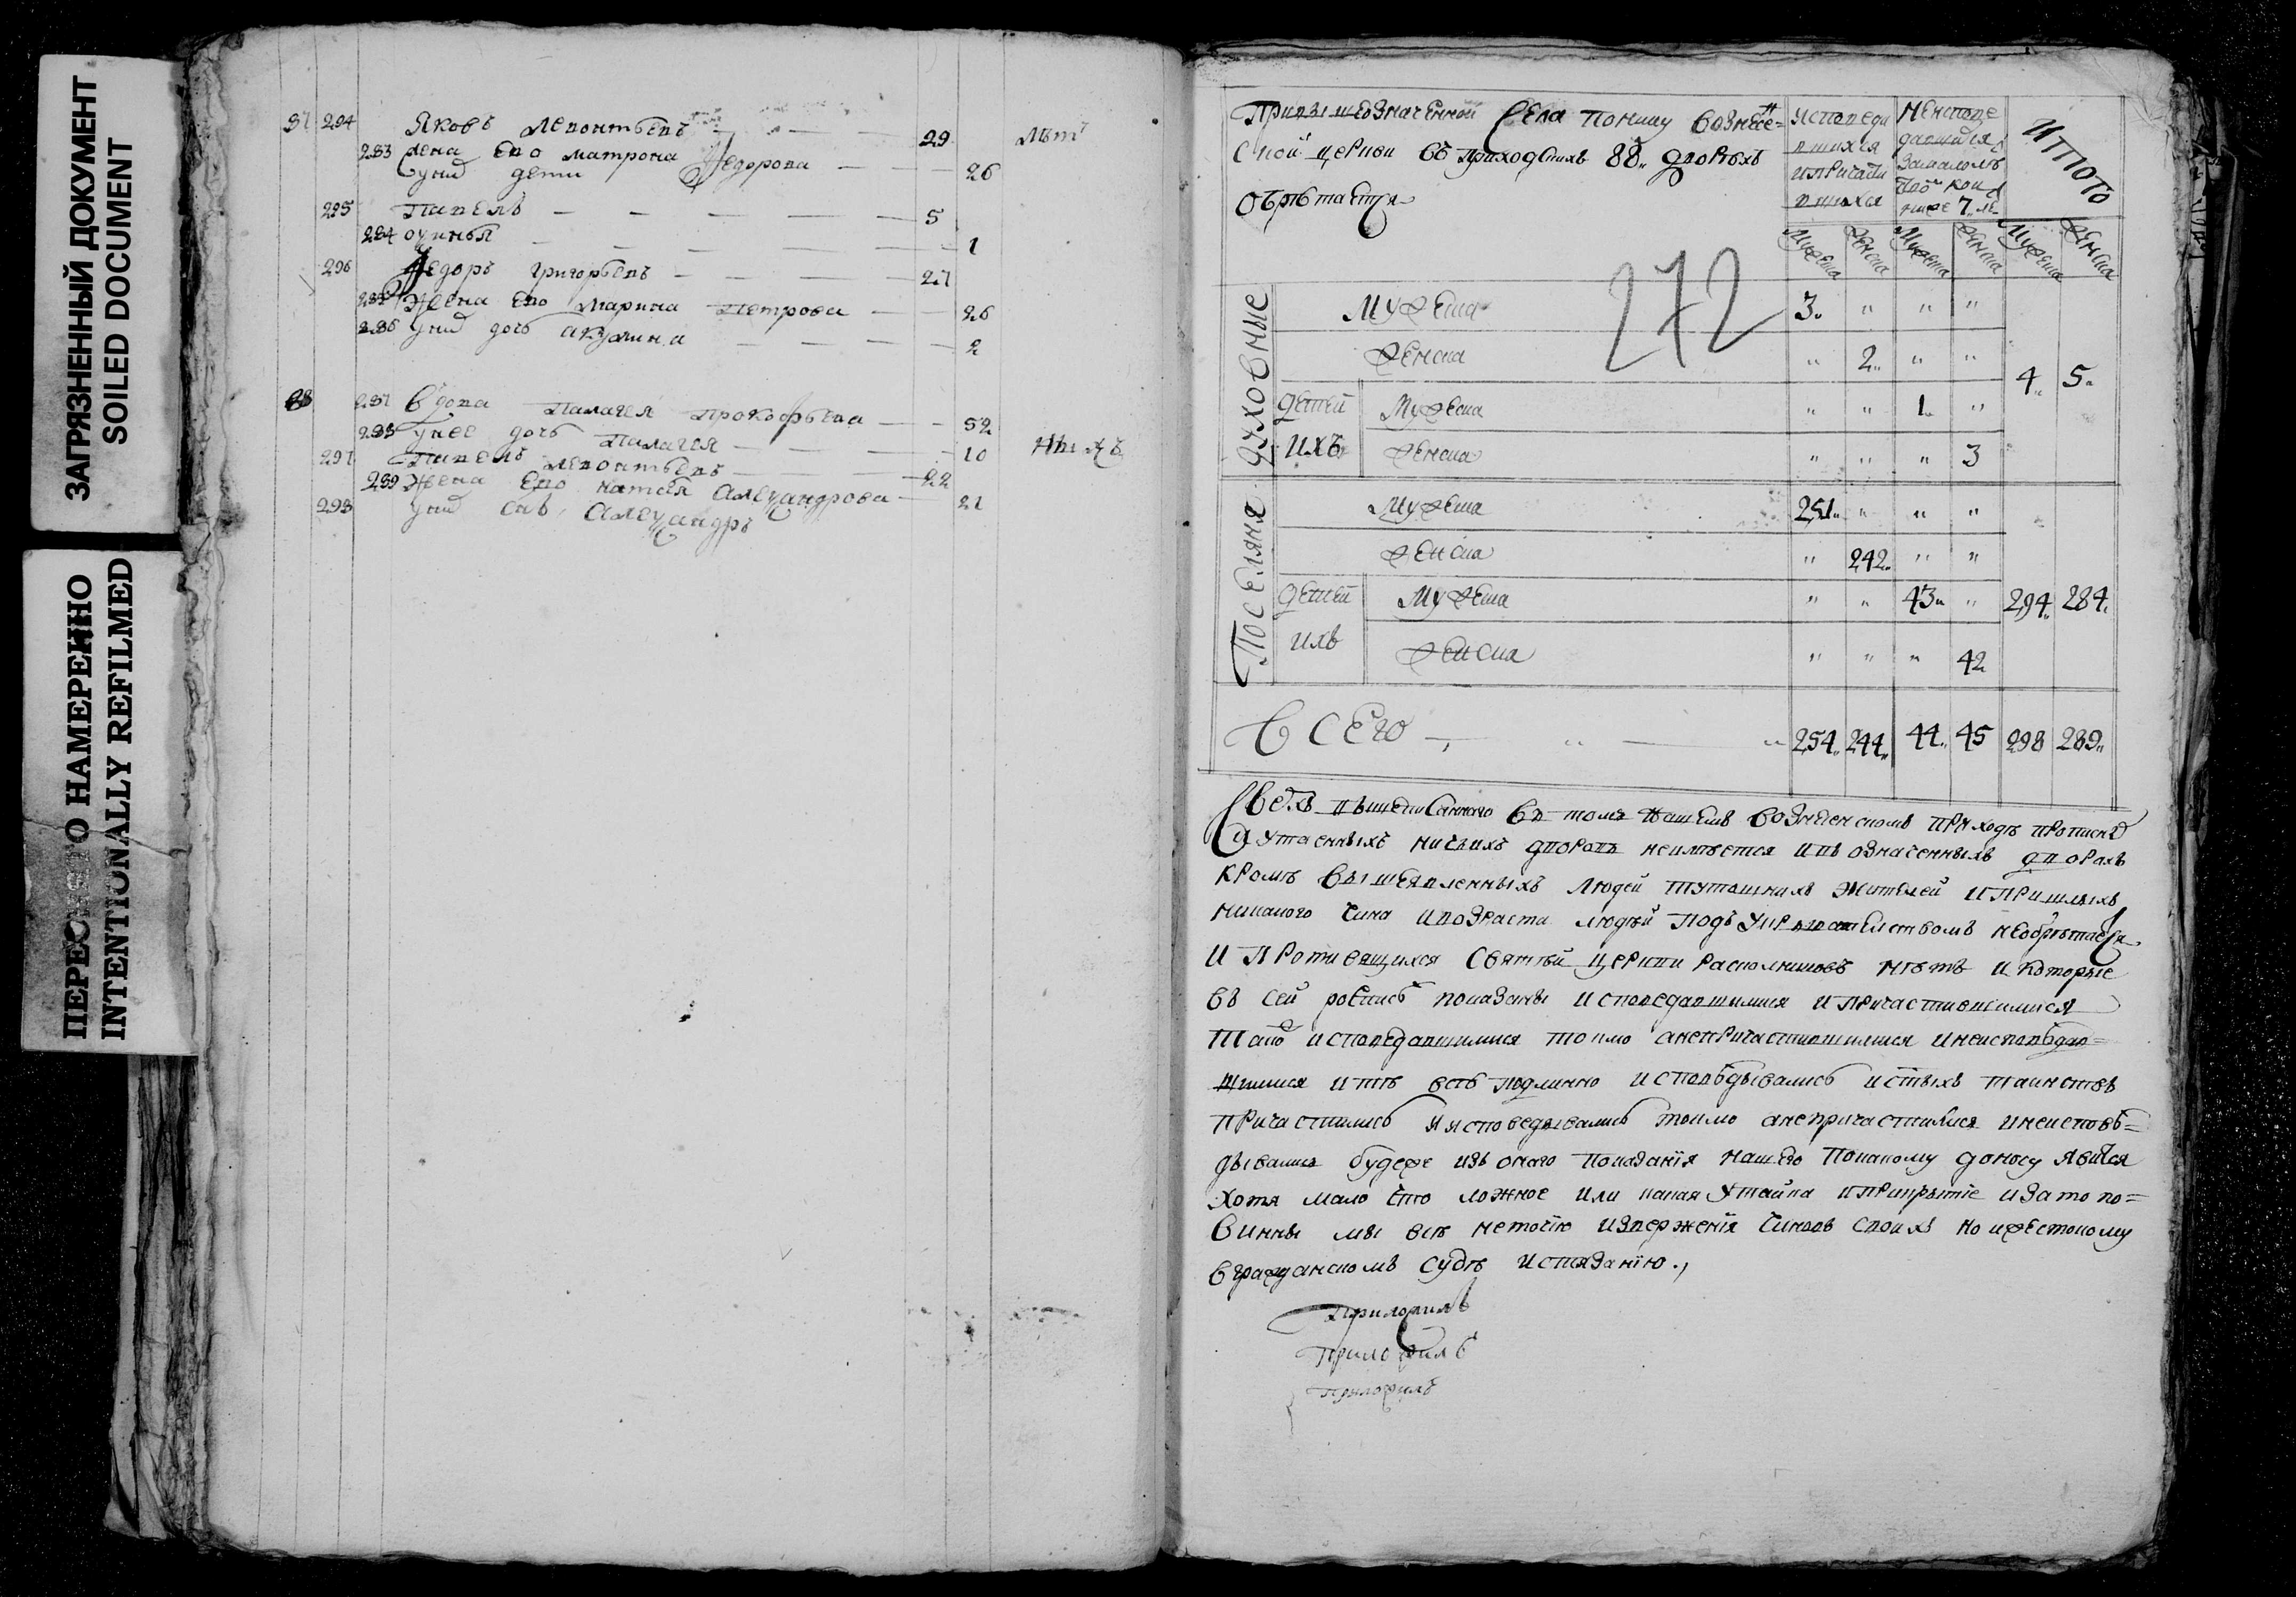 ЗАГРЯЗНЕННЫЙ ДОКУМЕНТ
SOILED DOCUMENT
ПЕРЕСНЯТО НАМЕРЕННО
INTENTIONALLY REFILMED
87 294 Яковъ Леонтьевъ 29 лѣтъ
283 жена Ево матрона Ѳедорова 26
Унихъ дети
295 Павелъ 5
284 оуинья 1
296 Ѳедоръ григорьевъ 27
285 Жена Ево Марина Петрова 26
286 Унихъ дочь акулина 2
88 287 Вдова Палагея Прокофьева 52
288 Унее дочь Палагея 10
297 Павелъ леонтьевъ 22
289 Жена Ево наталья Алеѯандрова 21
298 Унихъ Снъ Алеѯандръ
При вышеозначенной Села Поншу Вознесен=
ской церкви въ приходскихъ 88 дворехъ
обрѣтается
Исповеди
вшихся
ипричасти
вшихся
Неиспове
давшихся
Замалолѣ
нже 7 ле
ИТОГО
Мужеска женска Мужеска женска Мужеска женска
272
Духовные
Мужеска 3 " " "
женска " 2 " "
4 5
детей ихъ
Мужеска " " 1 "
женска " " " 3
Поселяня
Мужеска 251 " " "
женска " 242 " "
детей ихъ
Мужеска " " 43 " 294 284
женска " " " 42
Всего 254 244 44 45 298 289
Сверхъ вышеписанного въ томъ нашемъ вознесенскомъ приходѣ прописных
и утаенныхъ ничьихъ дворовъ неимѣется ивъ означенныхъ дворахъ
кромѣ вышеявленныхъ людей тутошнихъ жителей ипришлыхъ
никакого чина ивозраста людѣй подъ укрывательствомъ необрѣтается
и противящихся святѣй церкви раскольниковъ нѣтъ и которые
въ сей росписѣ показаны исповедавшимися и причастившимися
тако исповедавшимися токмо анепричастившимися инеисповѣдав=
шимися итѣ всѣ подлинно исповѣдывались истыхъ таинствъ
причастились и исповедывались токмо анепричастилися инеисповѣ=
дывались будеже изъ онаго показанія нашего покакому доносу явится
хотя мало что ложное или какая утайка иприкрытіе изато по=
винны мы всѣ неточію изверженія чиновъ своихъ но ижестокому
вгражданскомъ судѣ истязанію.,
Приложилъ
Приложилъ
Приложилъ